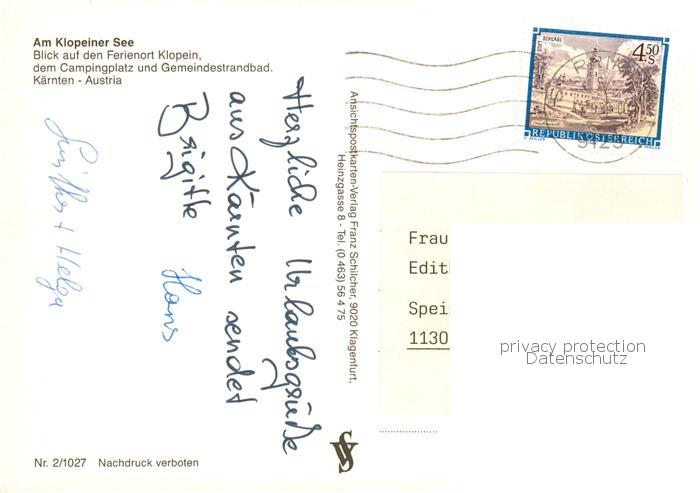 Am Klopeiner See
Blick auf den Ferienort Klopein,
dem Campingplatz und Gemeindestrandbad.
Kärnten - Austria
Herzliche Urlaubsgrüße
aus Kärnten sendet
Brigitte Hans
+ Helga
Nr. 2/1027 Nachdruck verboten
Ansichtspostkarten-Verlag Franz Schilcher, 9020 Klagenfurt,
Heinzgasse 8 - Tel. (0 463) 56 4 75
STIFT SCHLÄGL
4.50 S
REPUBLIK ÖSTERREICH
Frau
Edit
Spei
1130
privacy protection
Datenschutz